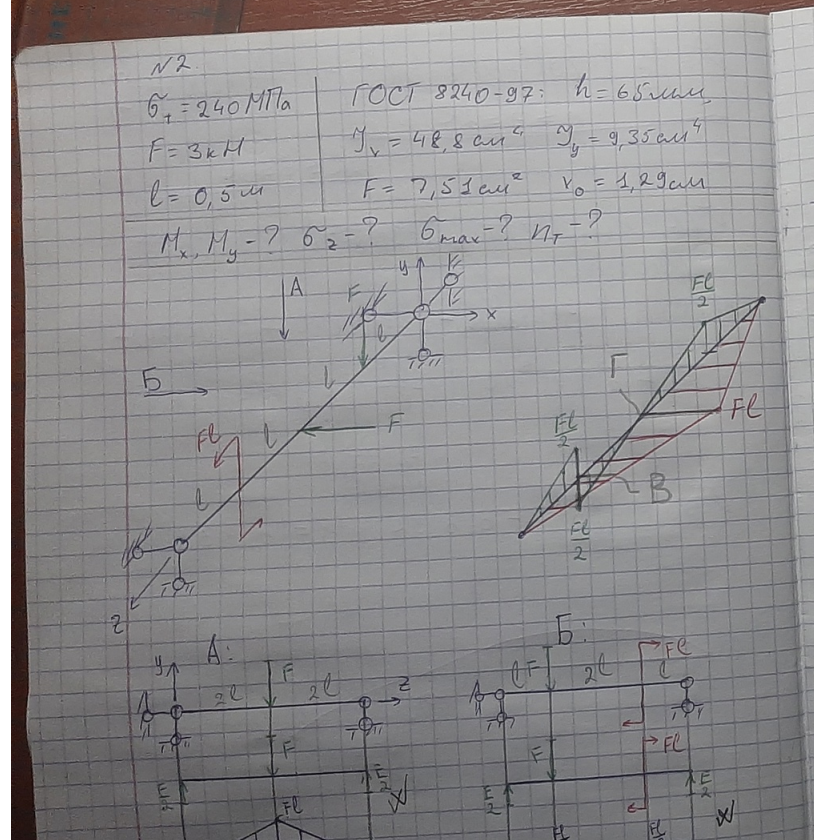 N2.
σт = 240 МПа
ГОСТ 8240-97: h = 65мм
F = 3кН
Jx = 48,8 см⁴ Jy = 9,35см⁴
l = 0,5м
F = 7,51 см² x₀ = 1,29см
Mx, My - ? σz - ? σmax - ? nт - ?
A
F
y
x
l
l
Б
F
Fl
l
l
z
Fl/2
Г
Fl
Fl/2
В
Fl/2
А:
y
F
2l
2l
z
F
F/2
F/2
Fl
Б:
l
F
2l
Fl
l
F
Fl
F/2
F/2